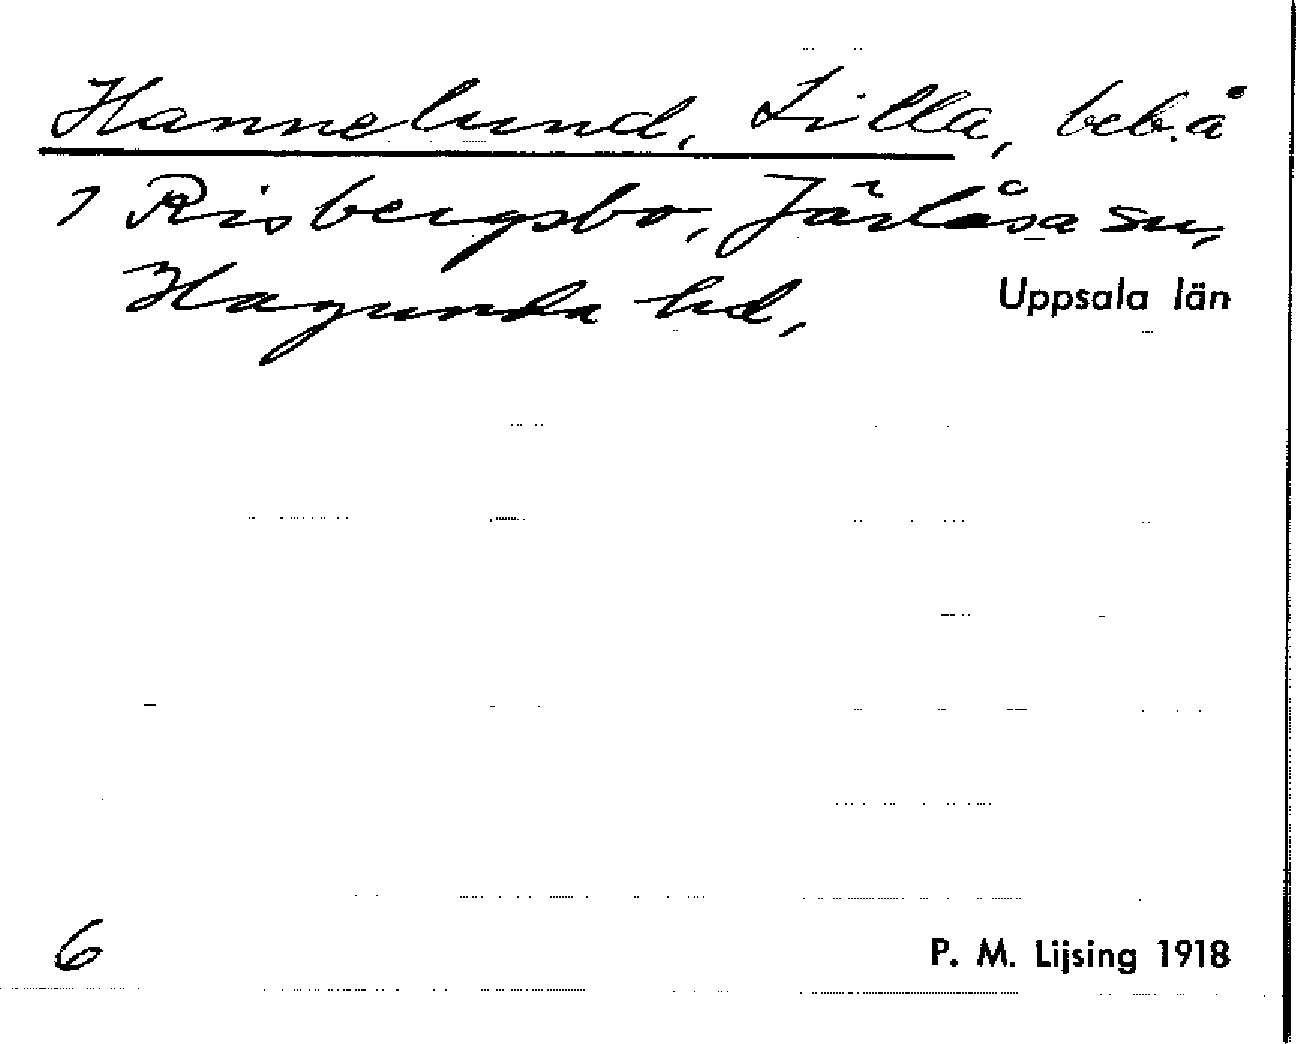 Hannelund, Lilla, beb.å
1 Risbergsbo, Järlåsa sn,
Hagunda hd, Uppsala län
6 P. M. Lijsing 1918